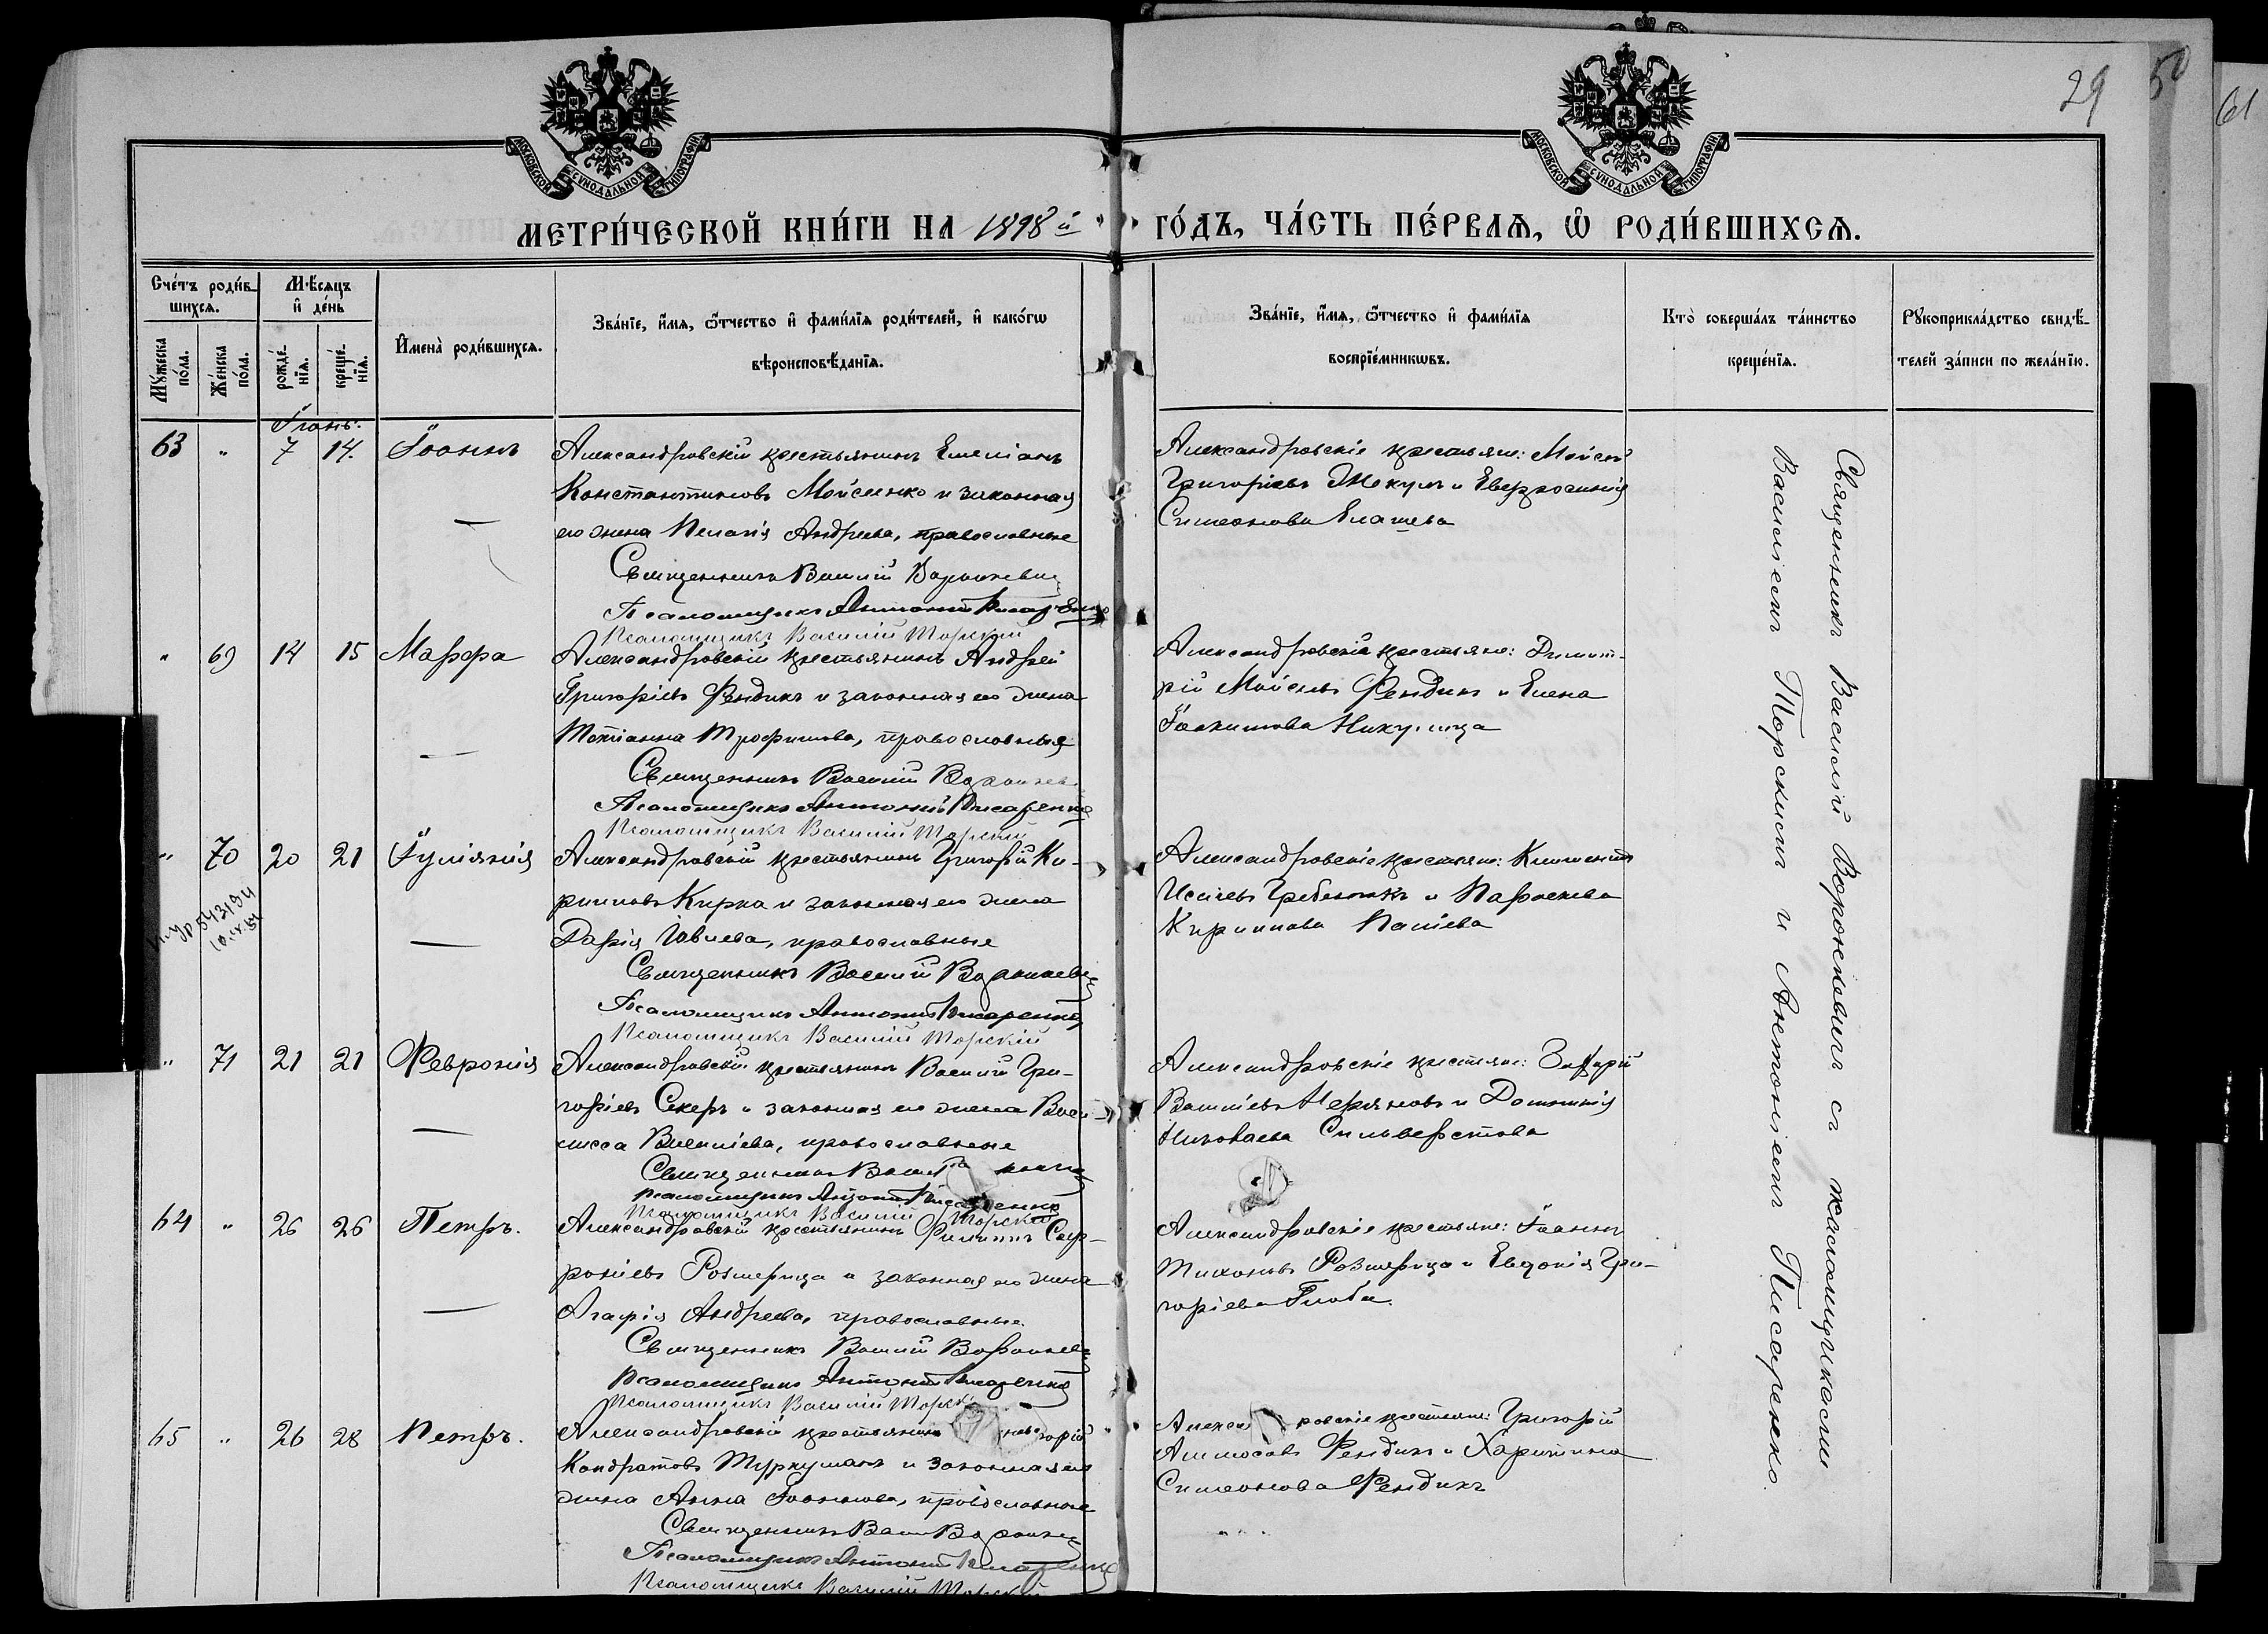 29
50
61
МОСКОВСКОЙ СѴНОДАЛЬНОЙ ТИПОГРАФІИ
МОСКОВСКОЙ СѴНОДАЛЬНОЙ ТИПОГРАФІИ
МЕТРИ́ЧЕСКОЙ КНИ́ГИ НА 1898й ГО́ДЪ, ЧА́СТЬ ПЕ́РВАѦ, Ѡ҆ РОДИ́ВШИХСѦ.
Сче́тъ роди́вшихсѧ.
Мꙋ́жеска по́ла.
Же́нска по́ла.
Мѣ́сѧцъ и҆ де́нь
рожде́нїѧ.
креще́нїѧ.
И҆мена̀ роди́вшихсѧ.
Зва́нїе, и҆́мѧ, ѻ҆́тчество и҆ фами́лїѧ роди́телей, и҆ како́гѡ
вѣроисповѣ́данїѧ.
Зва́нїе, и҆́мѧ, ѻ҆́тчество и҆ фами́лїѧ
воспрїе́мникѡвъ.
Кто̀ соверша́лъ та́инство
креще́нїѧ.
Рꙋкоприкла́дство свидѣ́-
телей за́писи по жела́нїю.
Іюнь.
63 " 7 14. Іоаннъ
Александровскій крестьянинъ Емеліанъ
Константиновъ Мойсеенко и законная
его жена Пелагія Андреева, православные
Священникъ Василій Воронкевич
Псаломщикъ Антоній Писаренко
Псаломщикъ Василій Торскій
Александровскіе крестьяне: Мойсей
Григоріевъ Жекулъ и Евфросинія
Симеонова Елашева
" 69 14 15 Марфа
Александровскій крестьянинъ Андрей
Григоріевъ Фендикъ и законная его жена
Татіанна Трофимова, православныя
Священникъ Василій Воронкев
Псаломщикъ Антоній Писаренко
Псаломщикъ Василій Торскій
Александровскіе крестьяне: Димит-
рій Мойсеевъ Фендикъ и Елена
Іоакимова Никулица
" 70 20 21 Іуліянія
543134
Александровскій крестьянинъ Григорій Ки-
рилловъ Кирка и законная его жена
Дарія Іовлева, православные
Священникъ Василій Воронкевич
Псаломщикъ Антоній Писаренко
Псаломщикъ Василій Торскій
Александровскіе крестьяне: Климентъ
Исаіевъ Гребенюкъ и Параскева
Кириллова Паліева
" 71 21 21 Февронія
Александровскій крестьянинъ Василій Гри-
горіевъ Секеръ и законная его жена Васи-
лисса Васильева, православные
Священникъ Васил
Псаломщикъ Антоній Писаренко
Псаломщикъ Василій Торскій
Александровскіе крестьяне:
Василіевъ и Домникія
Николаева Сильверстова
64 " 26 26 Петръ.
Александровскій крестьянинъ Филиппъ Соф-
роніевъ Розмерица и законная его жена
Агафія Андреева, православные
Священникъ Василій Воронкевич
Псаломщикъ Антоній Писаренко
Псаломщикъ Василій Торскій
Александровскіе крестьяне: Іоаннъ
Тихоновъ Розмерица и Евдокія Гри-
горіева Глоба.
65 " 26 28 Петръ.
Александровскій крестьянинъ
Кондратовъ Туркуманъ и законная его
жена Анна Іоаннова, православные
Священникъ Васил Воронкев
Псаломщикъ Антоній Писаренко
Псаломщикъ Василій Торскій
Алекса ровскіе крестьяне: Григорій
Аммосовъ Фендикъ и Харитина
Симеонова Фендикъ
Священникъ Василій Воронкевичъ съ псаломщиками
Василіемъ Торскимъ и Антоніемъ Писаренко.